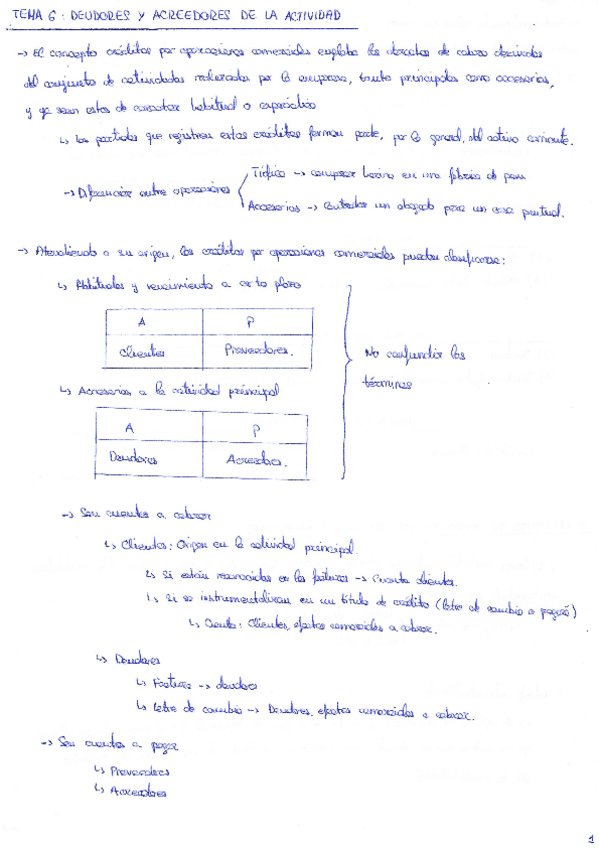 TEMA 6: DEUDORES Y ACREEDORES DE LA ACTIVIDAD
→ El concepto créditos por operaciones comerciales engloba los derechos de cobro derivados
del conjunto de actividades realizadas por la empresa, tanto principales como accesorias,
y ya sean estas de caracter habitual o esporádico
↳ Las partidas que registran estos créditos forman parte, por lo general, del activo corriente.
→ Diferenciar entre operaciones
Típica → comprar harina en una fábrica de pan
Accesorias → Contratar un abogado para un caso puntual.
→ Atendiendo a su origen, los créditos por operaciones comerciales pueden clasificarse:
↳ Habituales y vencimiento a corto plazo
A P
Clientes Proveedores.
No confundir los
términos
↳ Accesorios a la actividad principal
A P
Deudores Acreedores.
→ Son cuentas a cobrar
↳ Clientes: Origen en la actividad principal.
↳ Si están reconocidas en las facturas → Cuenta clientes.
↳ Si se instrumentalizan en un título de crédito (letra de cambio o pagaré)
↳ Cuenta: Clientes, efectos comerciales a cobrar.
↳ Deudores
↳ Factura → deudores
↳ Letra de cambio → Deudores, efectos comerciales a cobrar.
→ Son cuentas a pagar
↳ Proveedores
↳ Acreedores
1